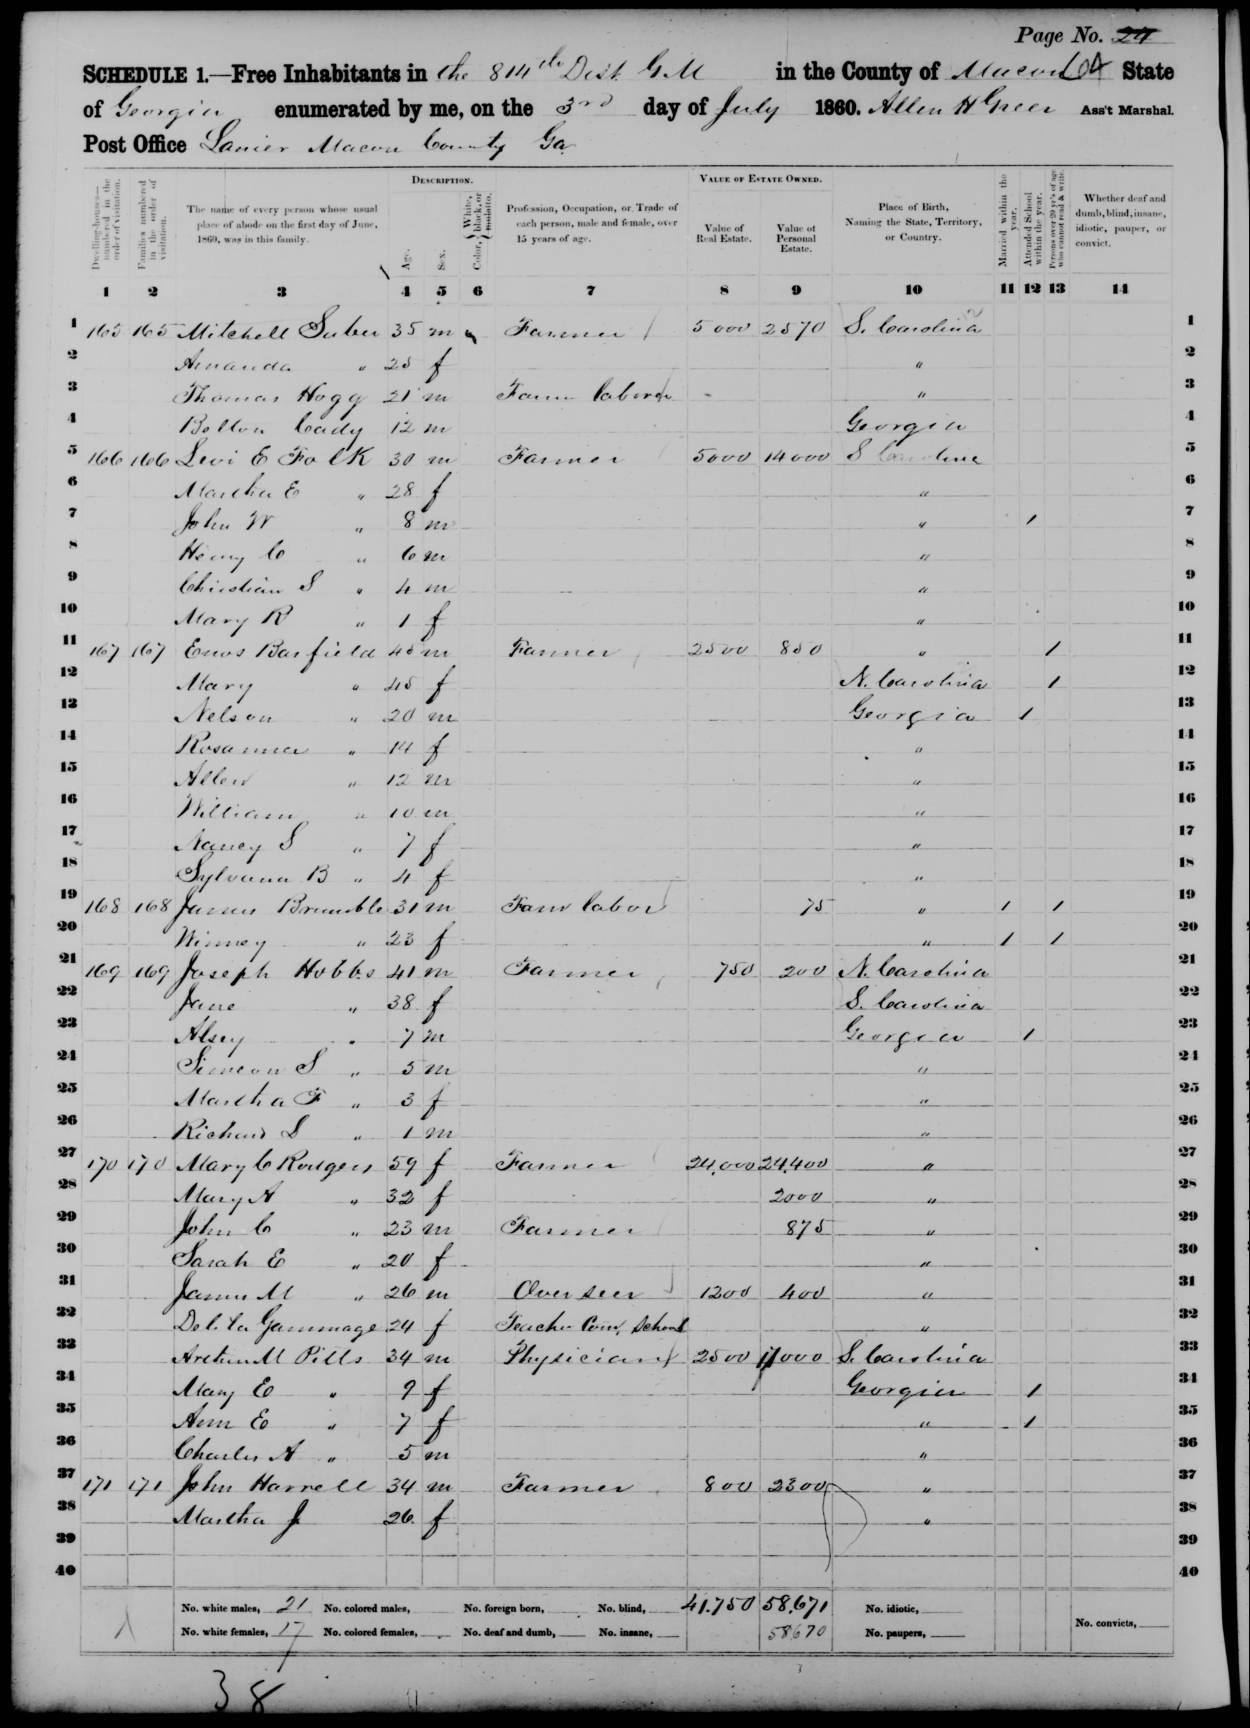 Page No. 24
SCHEDULE 1.—Free Inhabitants in the 814th Dist G.M in the County of Macon 64 State
of Georgia enumerated by me, on the 3rd day of July 1860. Allen H Greer Ass't Marshal.
Post Office Lanier Macon County Ga
Dwelling-houses—numbered in the order of visitation.
Families numbered in the order of visitation.
The name of every person whose usual place of abode on the first day of June, 1860, was in this family.
DESCRIPTION.
Age.
Sex.
Color, White, black, or mulatto.
Profession, Occupation, or Trade of each person, male and female, over 15 years of age.
VALUE OF ESTATE OWNED.
Value of Real Estate.
Value of Personal Estate.
Place of Birth, Naming the State, Territory, or Country.
Married within the year.
Attended School within the year.
Persons over 20 y'rs of age who cannot read & write.
Whether deaf and dumb, blind, insane, idiotic, pauper, or convict.
1 2 3 4 5 6 7 8 9 10 11 12 13 14
1 165 165 Mitchell Suber 35 m Farmer 5000 2570 S. Carolina 1
2 Amanda " 25 f " 2
3 Thomas Hogg 21 m Farm laborer - " 3
4 Bolton Cady 12 m Georgia 4
5 166 166 Levi E Folk 30 m Farmer 5000 14000 S Carolina 5
6 Martha E " 28 f " 6
7 John W " 8 m " 1 7
8 Henry C " 6 m " 8
9 Christian S " 4 m " 9
10 Mary R " 1 f " 10
11 167 167 Enos Barfield 45 m Farmer 2500 850 " 1 11
12 Mary " 45 f N. Carolina 1 12
13 Nelson " 20 m Georgia 1 13
14 Rosanna " 14 f " 14
15 Allen " 12 m " 15
16 William " 10 m " 16
17 Nancy S " 7 f " 17
18 Sylvanna B " 4 f " 18
19 168 168 James Brumble 31 m Farm labor 75 " 1 1 19
20 Winney " 23 f " 1 1 20
21 169 169 Joseph Hobbs 41 m Farmer 750 200 N. Carolina 21
22 Jane " 38 f S. Carolina 22
23 Alsey " 7 m Georgia 1 23
24 Simeon S " 5 m " 24
25 Martha F " 3 f " 25
26 Richard S " 1 m " 26
27 170 170 Mary C Rodgers 59 f Farmer 24,000 24,400 " 27
28 Mary A " 32 f 2000 " 28
29 John C " 23 m Farmer 875 " 29
30 Sarah E " 20 f " 30
31 James M " 26 m Overseer 1200 400 " 31
32 Delila Gammage 24 f Teacher Com. School " 32
33 Arthur M Pitts 34 m Physician 2500 11000 S. Carolina 33
34 Mary E " 9 f Georgia 1 34
35 Ann E " 7 f " 1 35
36 Charles A " 5 m " 36
37 171 171 John Harrell 34 m Farmer 800 2300 " 37
38 Martha J 26 f " 38
39 39
40 40
No. white males, 21 No. colored males, No. foreign born, No. blind, 41.750 58,671 No. idiotic,
No. white females, 17 No. colored females, No. deaf and dumb, No. insane, 58670 No. paupers, No. convicts,
38